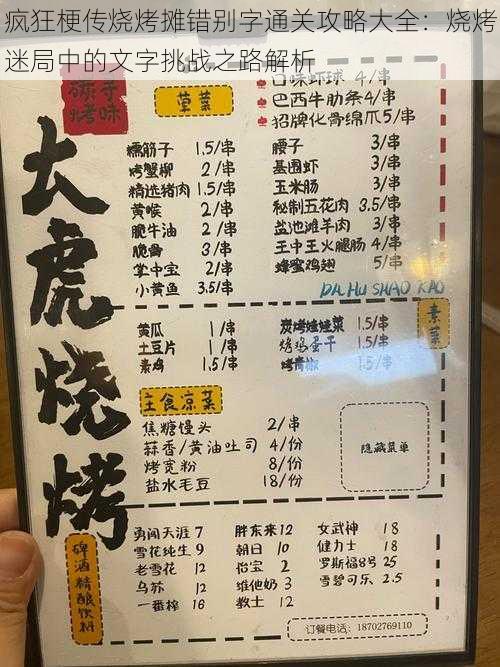 疯狂梗传烧烤摊错别字通关攻略大全：烧烤
迷局中的文字挑战之路解析
大虎烧烤
荤菜
糯筋子 1.5/串
烤蟹柳 2/串
精选猪肉 1.5/串
黄喉 2/串
脆牛油 2/串
脆骨 3/串
掌中宝 2/串
小黄鱼 3.5/串
口味虾球 4/串
巴西牛肋条4/串
招牌化骨绵爪5/串
腰子 3/串
基围虾 3/串
玉米肠 3/串
秘制五花肉 3.5/串
盐池滩羊肉 3/串
王中王火腿肠 4/串
蜂蜜鸡翅 5/串
DA HU SHAO KAO
素菜
黄瓜 1/串
土豆片 1/串
素鸡 1.5/串
炭烤娃娃菜 1.5/串
烤鸡蛋干 1.5/串
烤青椒 1.5/串
主食凉菜
焦糖馒头 2/串
蒜香/黄油吐司 4/份
烤宽粉 8/份
盐水毛豆 18/份
隐藏菜单
啤酒精酿饮料
勇闯天涯 7
雪花纯生 9
老雪花 12
乌苏 12
一番榨 16
胖东来 12
朝日 10
怡宝 2
维他奶 3
教士 12
女武神 18
健力士 18
罗斯福8号 25
雪碧可乐 2.5
订餐电话：18702769110